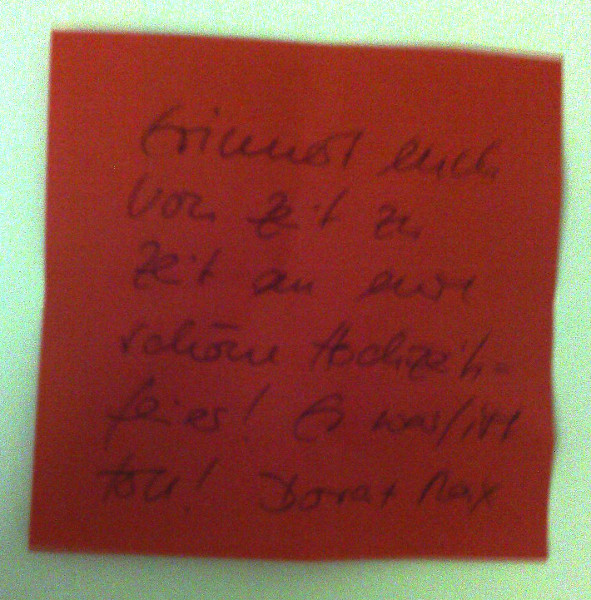 Erinnert euch
von Zeit zu
Zeit an eure
schöne Hochzeits-
feier! Es war/ist
toll! Dora + Max